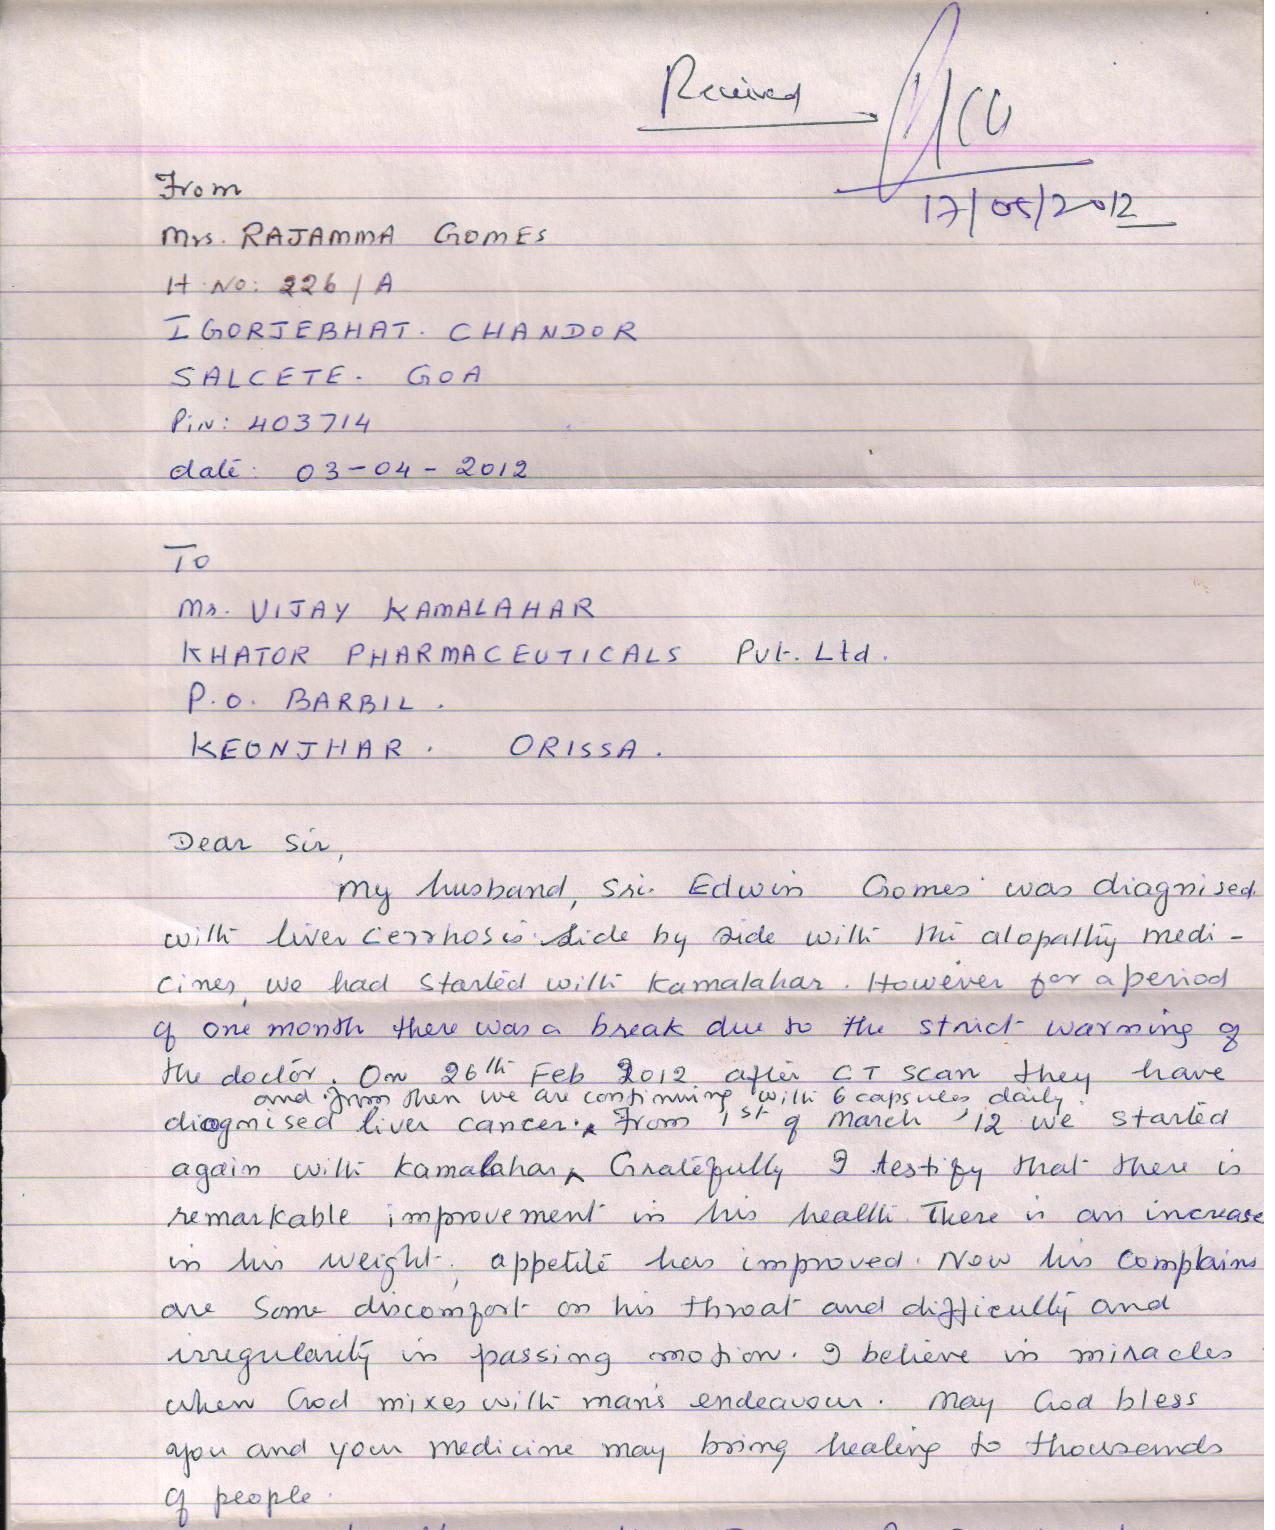 Received
17/05/2012
From
Mrs. RAJAMMA GOMES
H. No: 226/A
IGORJEBHAT. CHANDOR
SALCETE. GOA
Pin: 403714
date: 03-04-2012
To
Mr. VIJAY KAMALAHAR
KHATOR PHARMACEUTICALS Pvt. Ltd.
P.O. BARBIL.
KEONJHAR. ORISSA.
Dear Sir,
My husband, Sri. Edwin Gomes was diagnised
with liver cerrhosis. Side by side with the alopathy medi-
cines, we had started with Kamalahar. However for a period
of one month there was a break due to the strict warning of
the doctor. On 26th Feb 2012 after CT scan they have
and from then we are continuing with 6 capsules daily.
diagnised liver cancer. From 1st of March '12 we started
again with Kamalahar. Gratefully I testify that there is
remarkable improvement in his health. There is an increase
in his weight, appetite has improved. Now his complains
are some discomfort on his throat and difficulty and
irregularity in passing motion. I believe in miracles
when God mixes with man's endeavour. May God bless
you and your medicine may bring healing to thousands
of people.